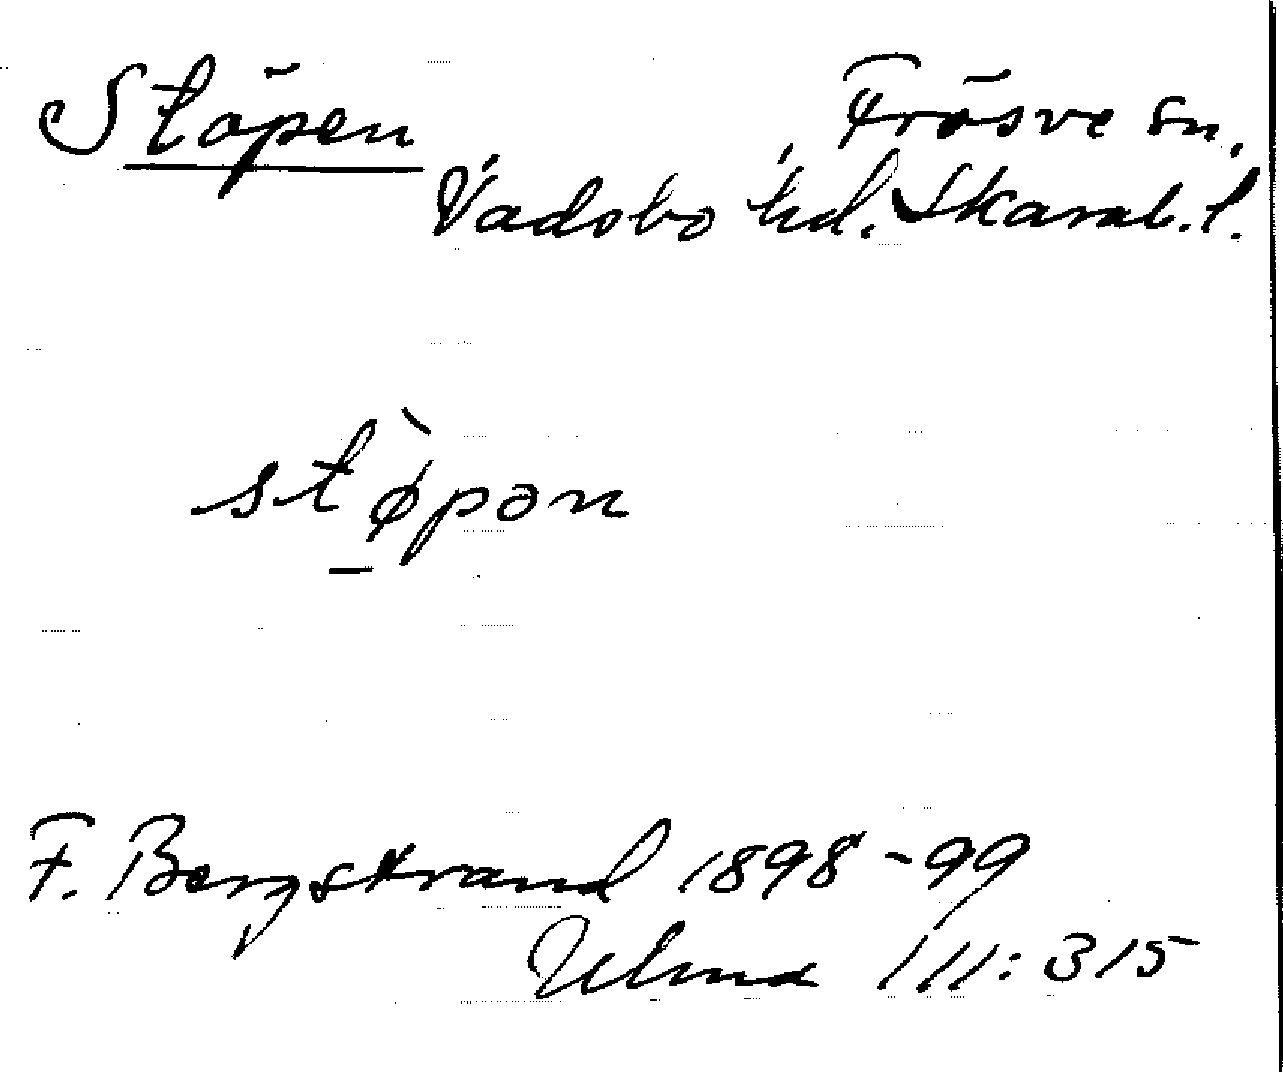 Stöpen Frösve sn.
Vadsbo hd. Skarab. l.
stø̀pən
F. Bergstrand 1898-99
Ulma 111:315